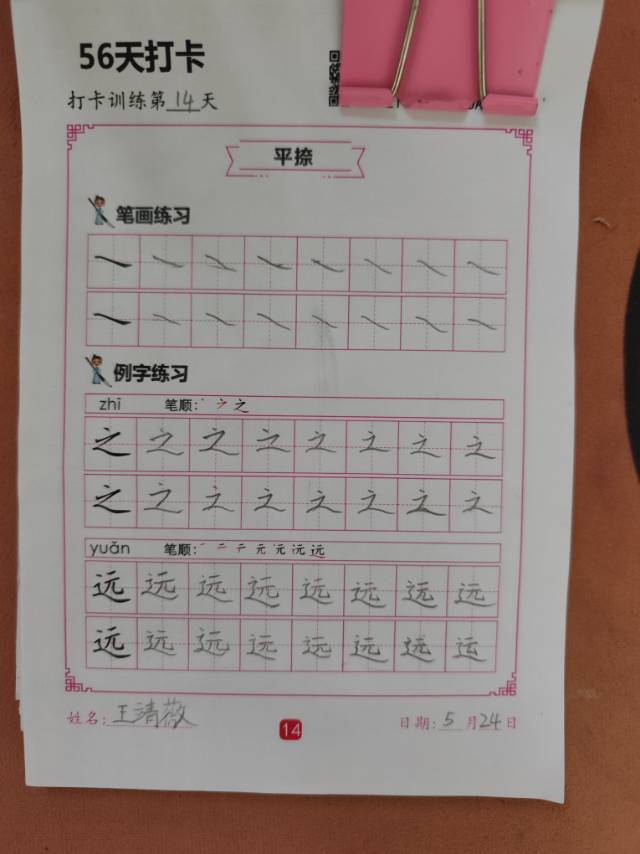 56天打卡
打卡训练第14天
平捺
笔画练习
例字练习
zhī 笔顺:丶 ㇇ 之
之 之 之 之 之 之 之 之
之 之 之 之 之 之 之 之
yuǎn 笔顺:一 二 テ 元 元 沅 远
远 远 远 远 远 远 远 远
远 远 远 远 远 远 远 运
姓名:王清薇
14
日期:5月24日